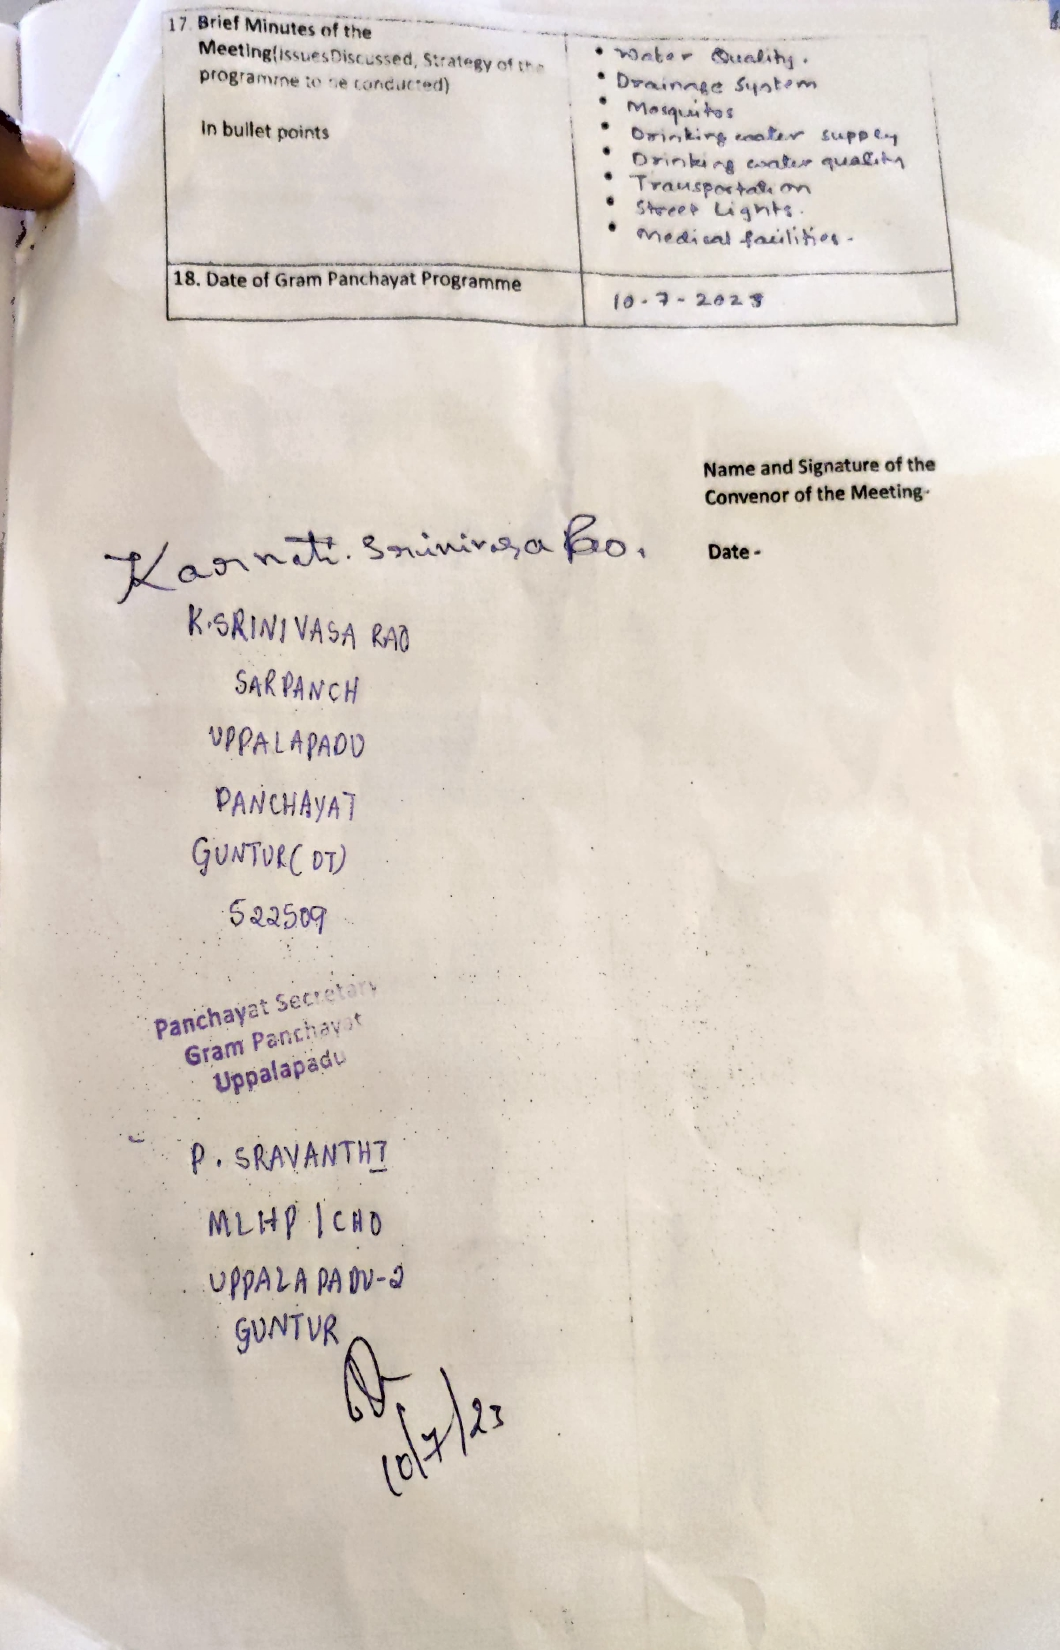 17. Brief Minutes of the
Meeting(IssuesDiscussed, Strategy of the
programme to be conducted)
In bullet points
• Water Quality.
• Drainage System
• Mosquitos
• Drinking water supply
• Drinking water quality
• Transportation
• Street Lights.
• Medical facilities.
18. Date of Gram Panchayat Programme
10-7-2023
Name and Signature of the
Convenor of the Meeting-
Date -
Karnati. Srinivasa Rao.
K.SRINIVASA RAO
SARPANCH
UPPALAPADU
PANCHAYAT
GUNTUR(DT)
522509
Panchayat Secretary
Gram Panchayat
Uppalapadu
P. SRAVANTHI
MLHP / CHO
UPPALAPADU-2
GUNTUR
10/7/23